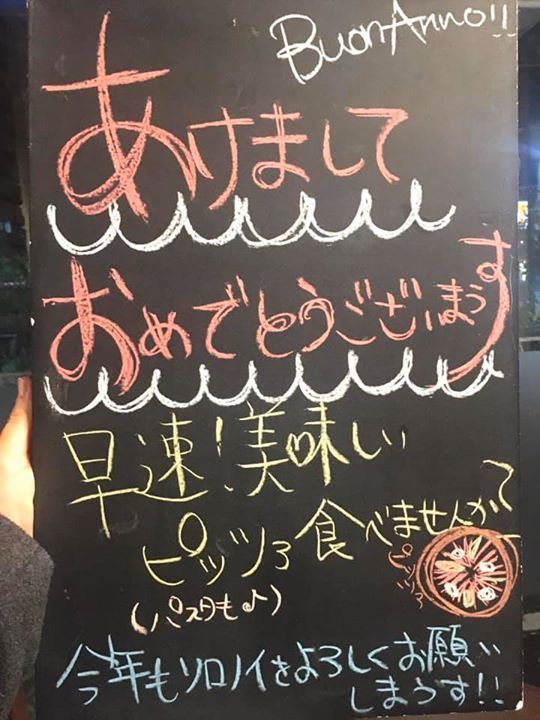 Buon Anno!!
あけまして
おめでとうございまうす
早速!美味しい
ピッツァ食べませんか?
ピッツァ
(パスタも♪)
今年もソロノイをよろしくお願い
しまうす!!